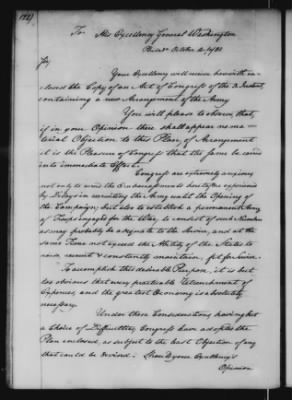 To His Excellency General Washington
Philada October 4. 1780
Sir,
Your Excellency will receive herewith en-
closed the Copy of an Act of Congress of the 3d Instant
containing a new Arrangement of the Army
You will please to observe, that,
if in your Opinion there shall appear no ma-
terial Objection to this Plan, of Arrangement
it is the Pleasure of Congress that the same be carried
into immediate Effect.
Congress are extremely anxious
not only to avoid the Embarrassments heretofore experienced
by Delays in recruiting the Army until the Opening of
the Campaign, but also to establish a permanent Army
of Troops engaged for the War, to consist of such Number
as may probably be adequate to the Service, and at the
same Time not exceed the Ability of the States to
raise recruit & constantly maintain fit for Service.
To accomplish this desirable Purpose, it is but
too obvious that every practicable Retrenchment of
Expences, and the greatest Oeconomy is absolutely
necessary.
Under these Considerations, having but
a Choice of Difficulties, Congress have adopted the
Plan enclosed, as subject to the least Objection of any
that could be devised. Should your Excellency's
Opinion